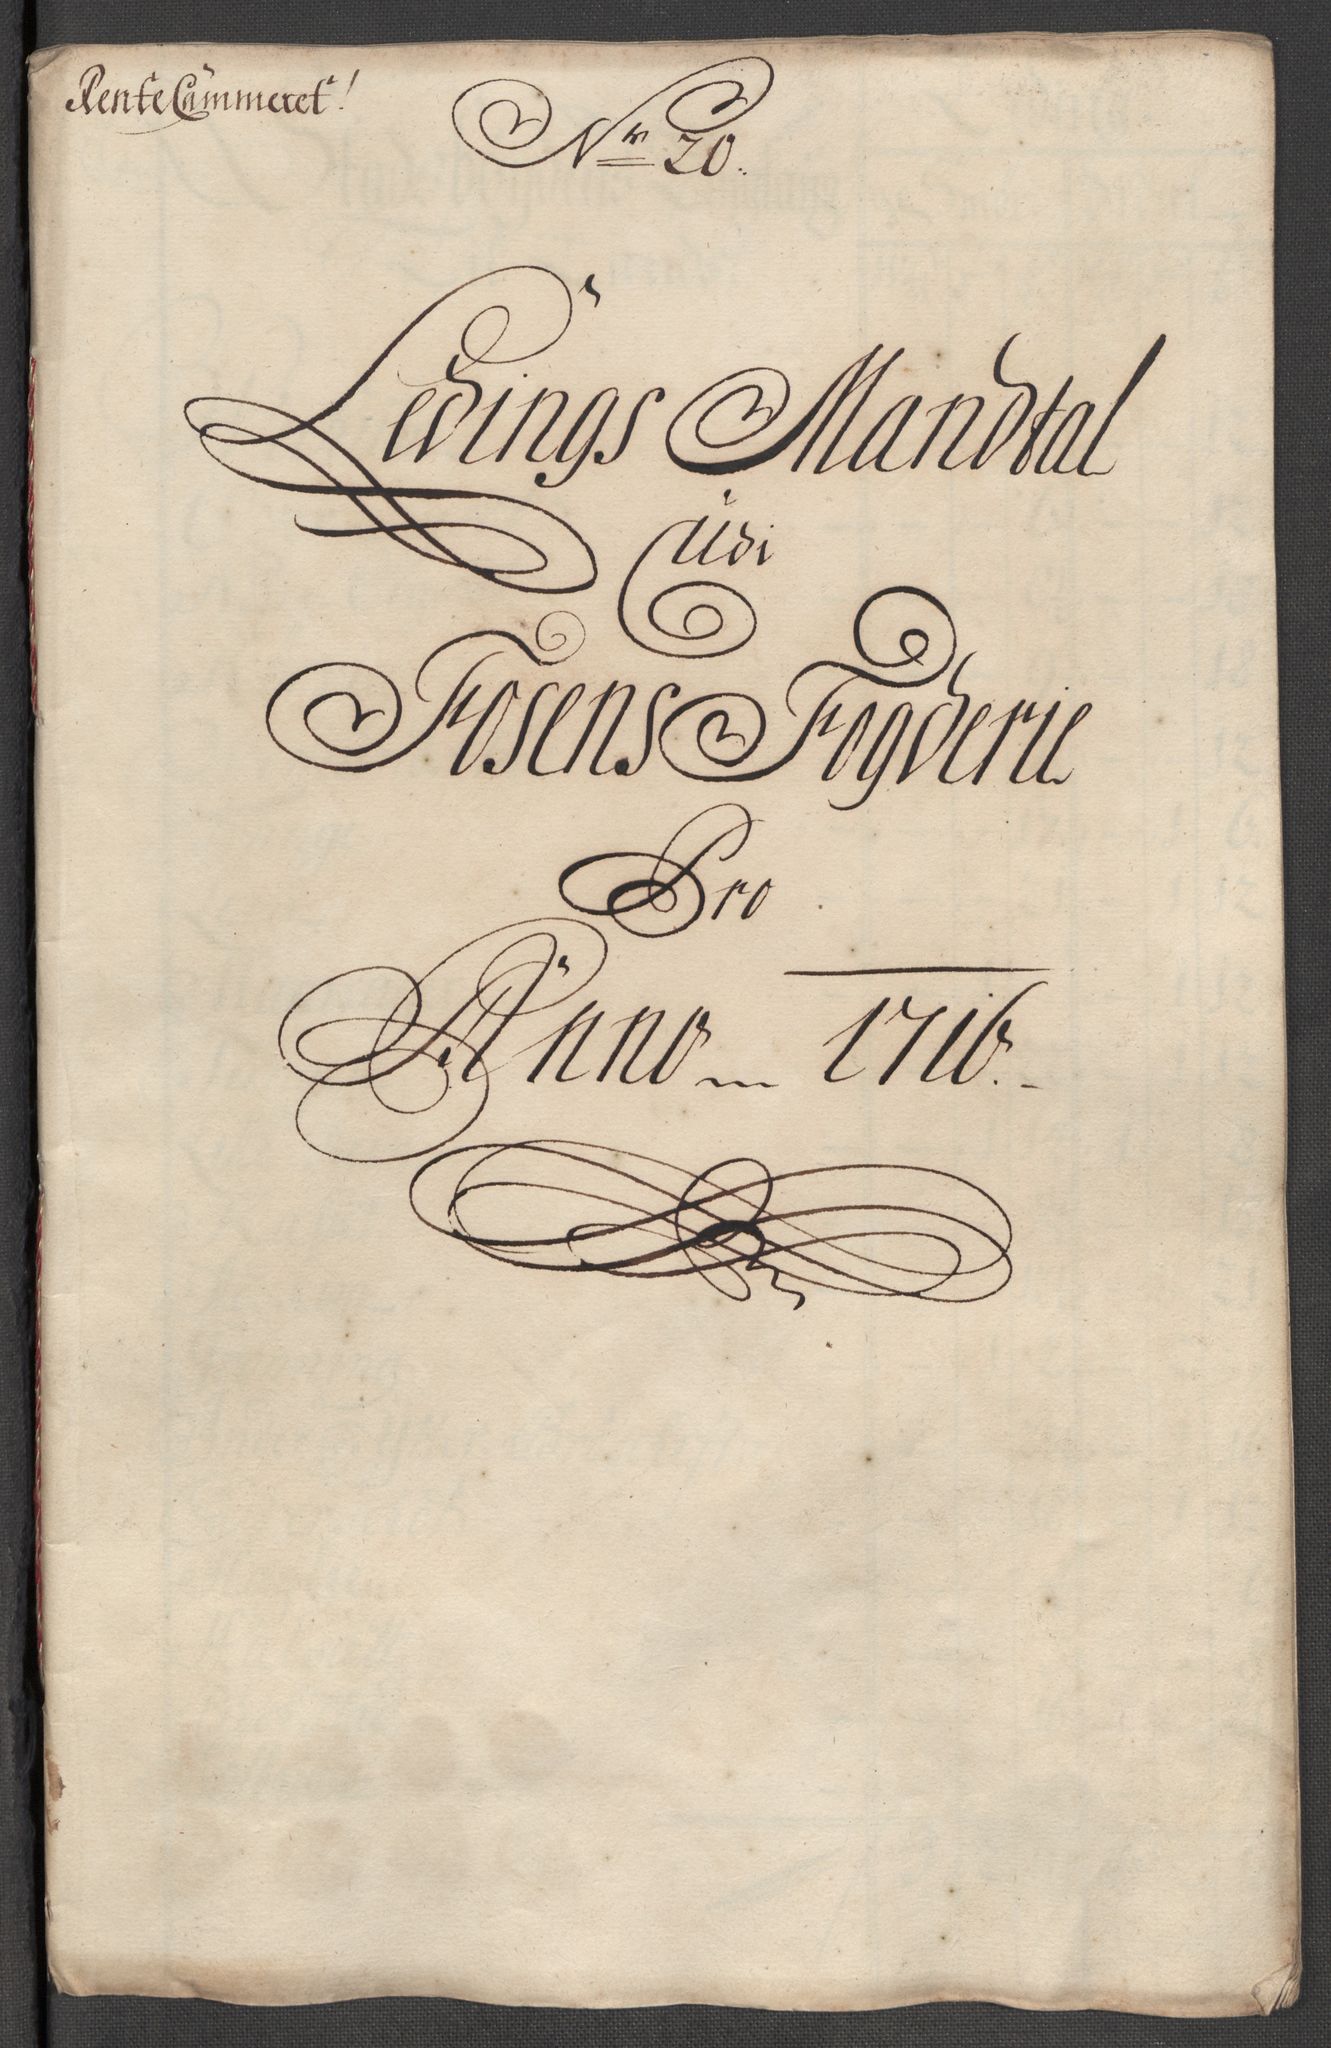 RenteCammeret!
No 20.
Ledings Mandtal
Udi
Fosens Fogderie
Pro
Anno 1716.